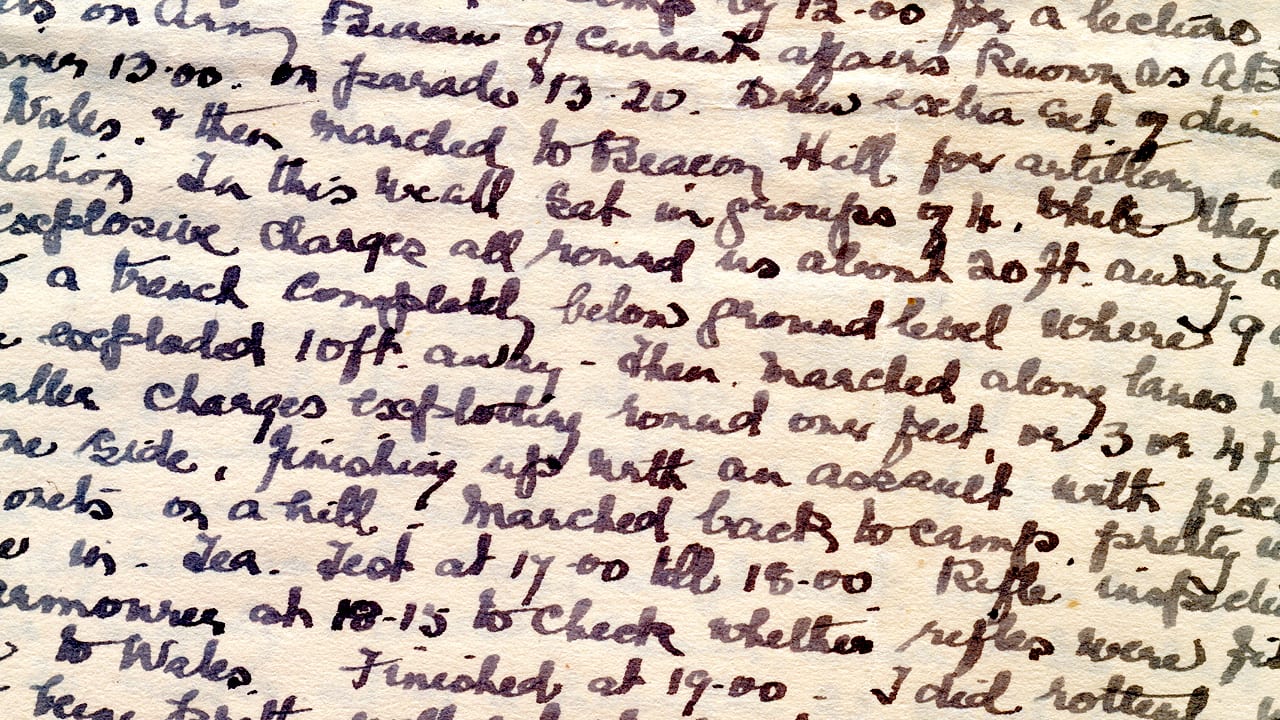 on Army Bureau of Current Affairs Known as AB
13-00. on parade 13-20. Drew extra set of
Wales. & then marched to Beacon Hill for artillery
lation In this we all sat in groups of 4, while they
explosive charges all round us about 20ft. away.
a trench completely below ground level where 9
exploded 10ft. away - then marched along lanes
aller charges exploding round our feet, or 3 or 4 f
ne side, finishing up with an assault with fixe
onets on a hill. Marched back to camp. pretty
in. Tea. Test at 17-00 till 18-00 Rifle inspecti
armourer at 18-15 to check whether rifles were fit
to Wales. Finished at 19-00. I did rotten